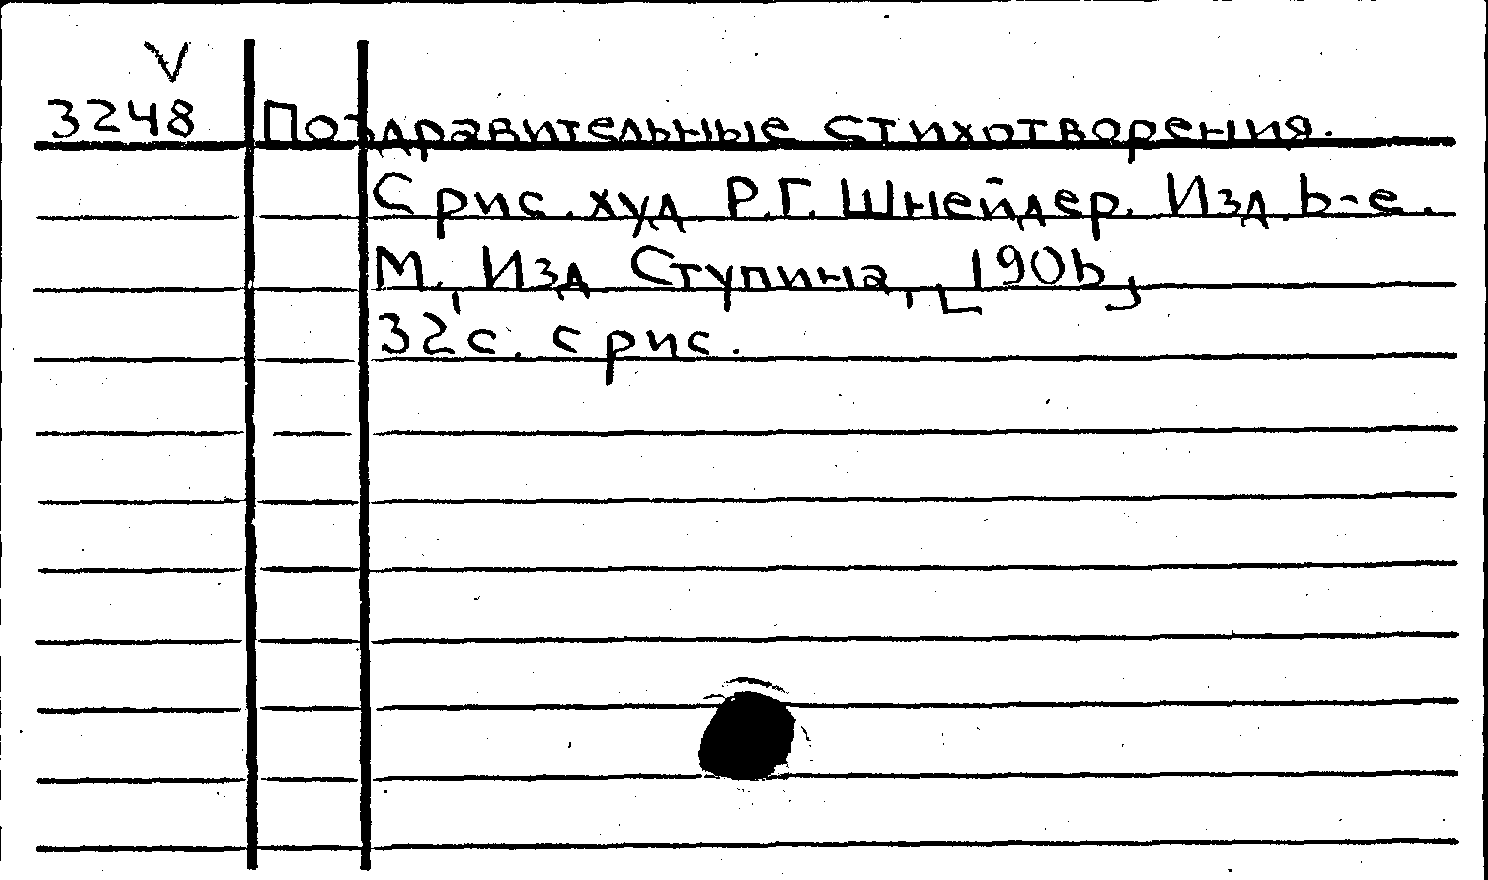 V
3248 Поздравительные стихотворения.
С рис. худ. Р.Г. Шнейдер. Изд. 6-е.
М., Изд Ступина, [1906]
32 с. с рис.